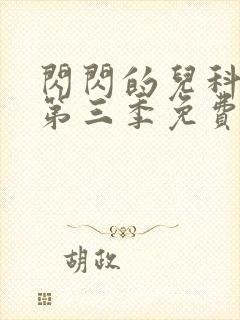 閃閃的兒科
第三季免費
胡政